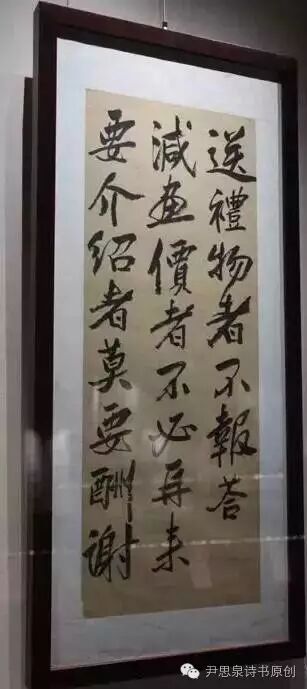 送禮物者不報荅
減畫價者不必再来
要介绍者莫要酬谢
尹思泉诗书原创